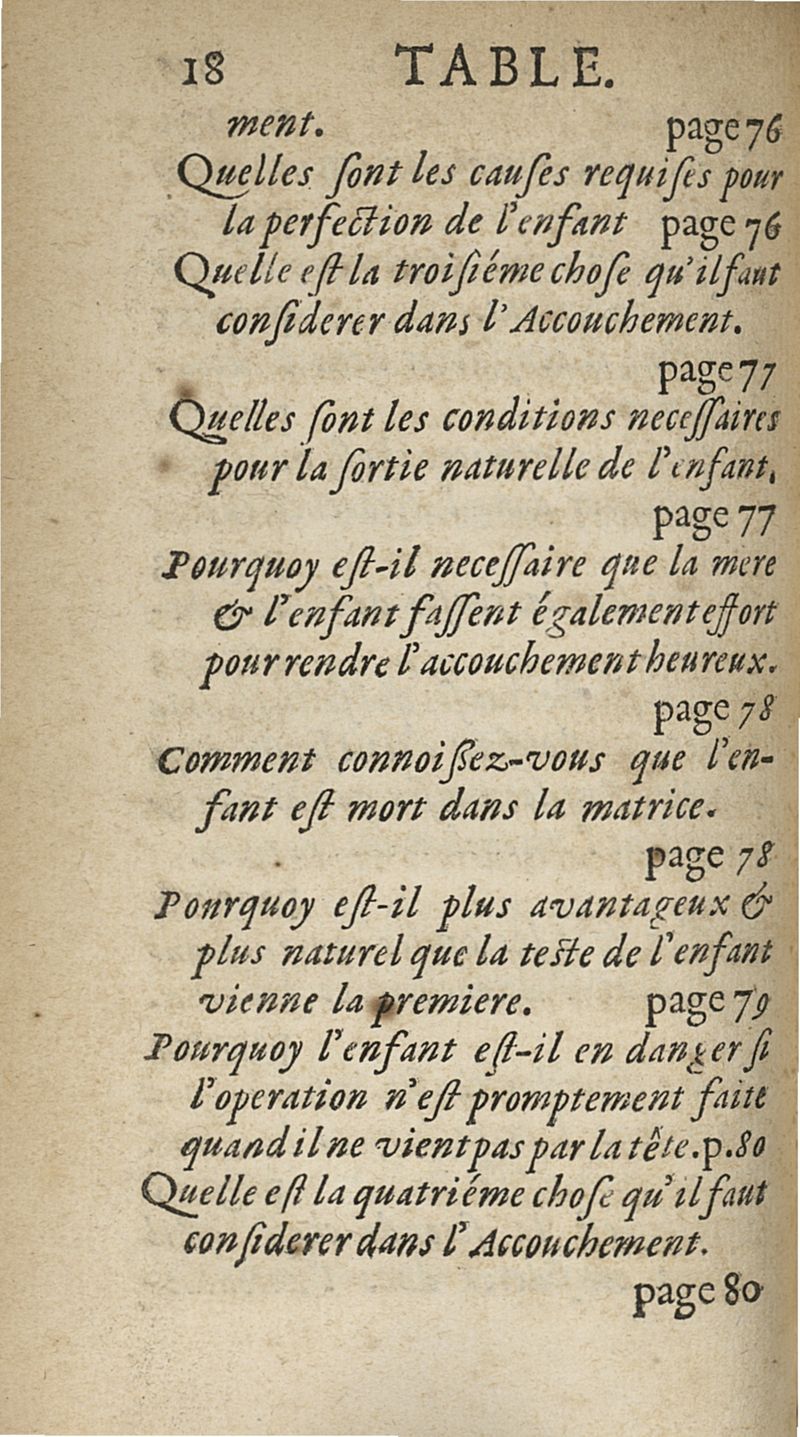 18 TABLE.
ment. page 76
Quelles ſont les cauſes requiſes pour
la perfection de l'enfant page 76
Quelle eſt la troiſiéme choſe qu'il faut
conſiderer dans l'Accouchement.
page 77
Quelles ſont les conditions neceſſaires
pour la ſortie naturelle de l'enfant.
page 77
Pourquoy eſt-il neceſſaire que la mere
& l'enfant faſſent également effort
pour rendre l'accouchement heureux.
page 78
Comment connoiſſez-vous que l'en-
fant eſt mort dans la matrice.
page 78
Ponrquoy eſt-il plus avantageux &
plus naturel que la teſte de l'enfant
vienne la premiere. page 79
Pourquoy l'enfant eſt-il en danger ſi
l'operation n'eſt promptement faite
quand il ne vient pas par la tête. p. 80
Quelle eſt la quatriéme choſe qu'il faut
conſiderer dans l'Accouchement.
page 80